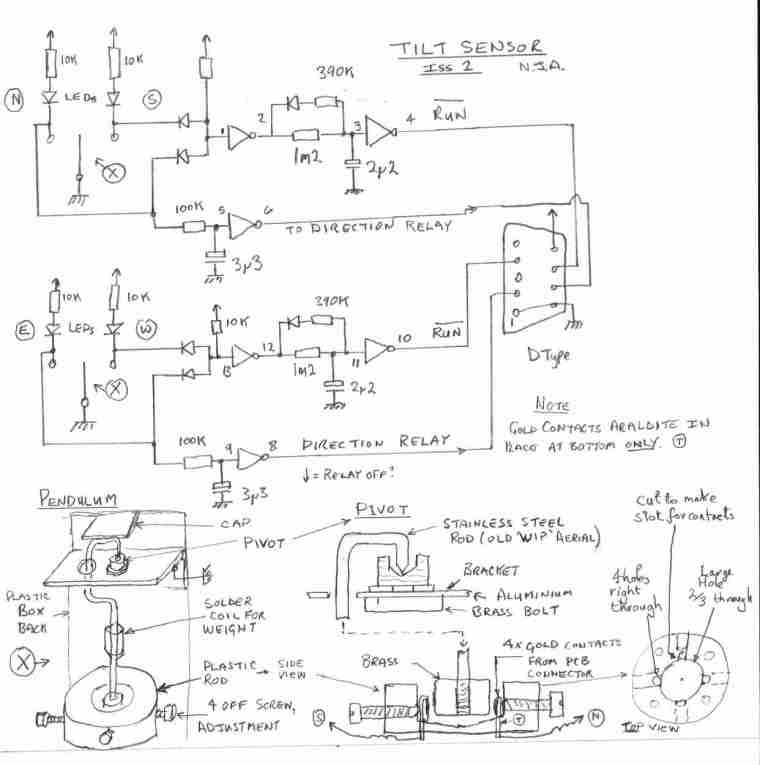 TILT SENSOR
ISS 2 N.J.A.
10K
10K
390K
N
LEDs
S
1
2
1m2
3
4
RUN
2µ2
X
100K
5
6
TO DIRECTION RELAY
3µ3
10K
10K
390K
E
LEDs
W
10K
13
12
1m2
11
10
RUN
1
D Type
X
2µ2
NOTE
GOLD CONTACTS ARALDITE IN
PLACE AT BOTTOM ONLY. T
100K
9
8
DIRECTION RELAY
↓ = RELAY OFF?
3µ3
PENDULUM
CAP
PIVOT
PLASTIC
BOX
BACK
SOLDER
COIL FOR
WEIGHT
X
PLASTIC
ROD
SIDE
VIEW
4 OFF SCREW,
ADJUSTMENT
PIVOT
STAINLESS STEEL
ROD (OLD "WIP" AERIAL)
BRACKET
ALUMINIUM
BRASS BOLT
BRASS
4x GOLD CONTACTS
FROM PCB
CONNECTOR
S
T
N
CUT to make
slot for contacts
4 holes
right
through
Large
Hole
2/3 through
TOP VIEW